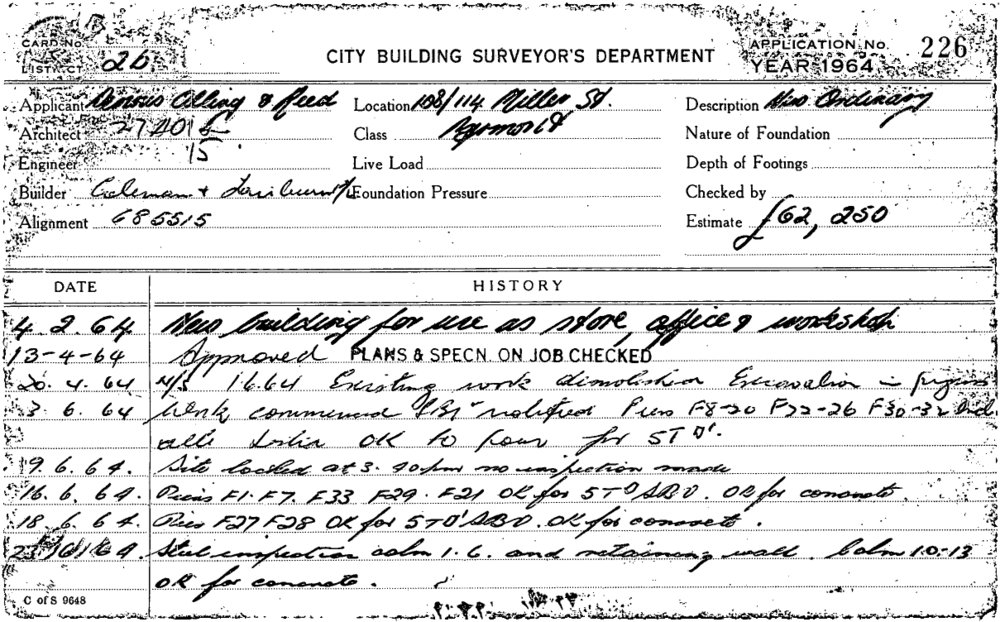 CARD No.
DISTRICT 26
CITY BUILDING SURVEYOR'S DEPARTMENT
APPLICATION No. 226
YEAR 1964
Applicant Colling & Reed
Location 108/114 Miller St.
Description New Ordinary
Architect
Class Pyrmont
Nature of Foundation
Engineer
Live Load
Depth of Footings
Builder Coleman +
Foundation Pressure
Checked by
Alignment 685515
Estimate £62,250
DATE
HISTORY
4.2.64 New building for use as store, office & workshop
13-4-64 Approved PLANS & SPECN. ON JOB CHECKED
20.4.64 N/S 1664 Existing work demolition Excavation in progress
3.6.64 Work commenced notified Piers F8-20 F22-26 F30-32
OK to pour for STD'.
9.6.64. Site locked at 3.40pm no inspection made
16.6.64. Piers F1-F7. F33 F29. F21 OK for STD OK for concrete.
18.6.64. Piers F27 F28 OK for STD' OK for concrete.
Steel inspection colm 1-6. and retaining wall. Colm 10-13
OK for concrete.
C of S 9648